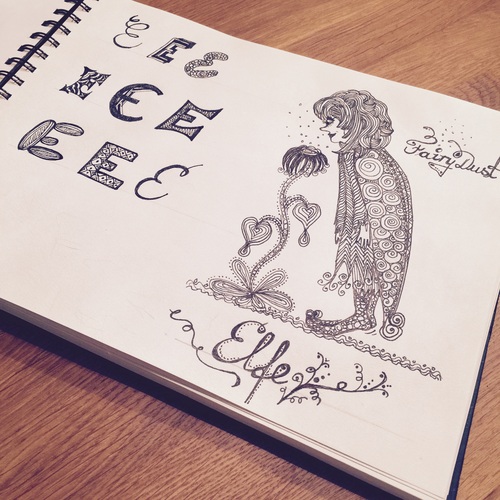 E E E
E E E
E E E
Fairy Dust
Elfe